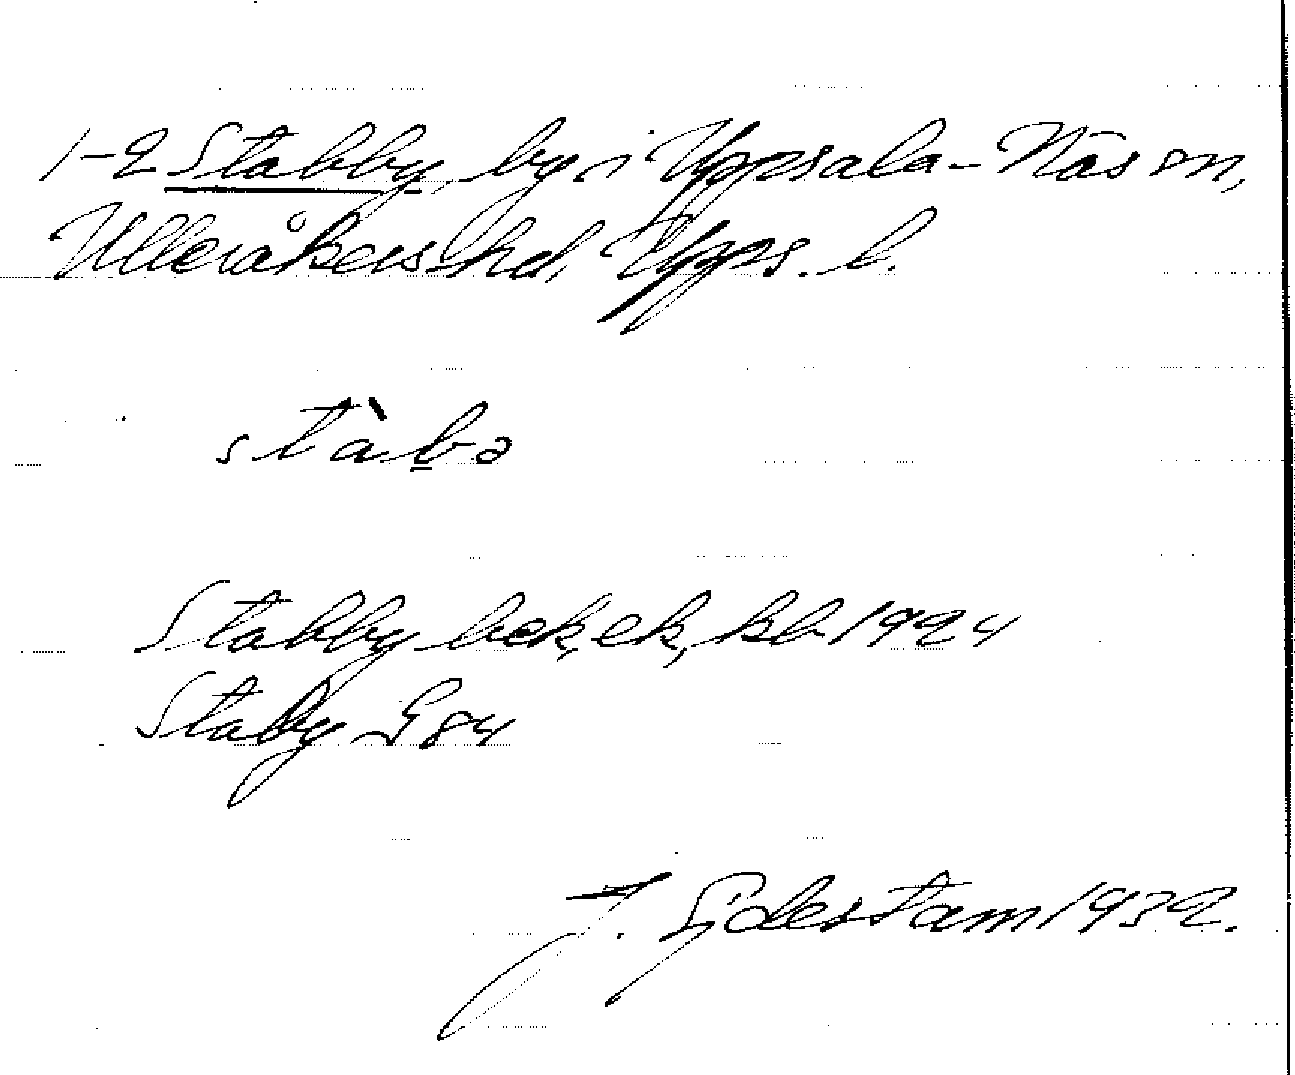 1-2 Stabby, by i Uppsala-Näs sn,
Ulleråkers hd, Upps. l.
stàbə
Stabby bek, ek, kb 1924
Staby G 84
F. Gidestam 1932.